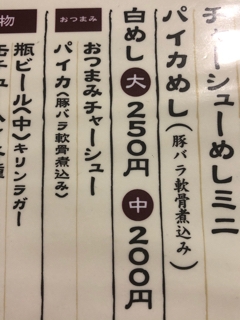 チャーシューめしミニ
パイカめし(豚バラ軟骨煮込み)
白めし大250円中200円
おつまみ
おつまみチャーシュー
パイカ(豚バラ軟骨煮込み)
物
瓶ビール(中)キリンラガー